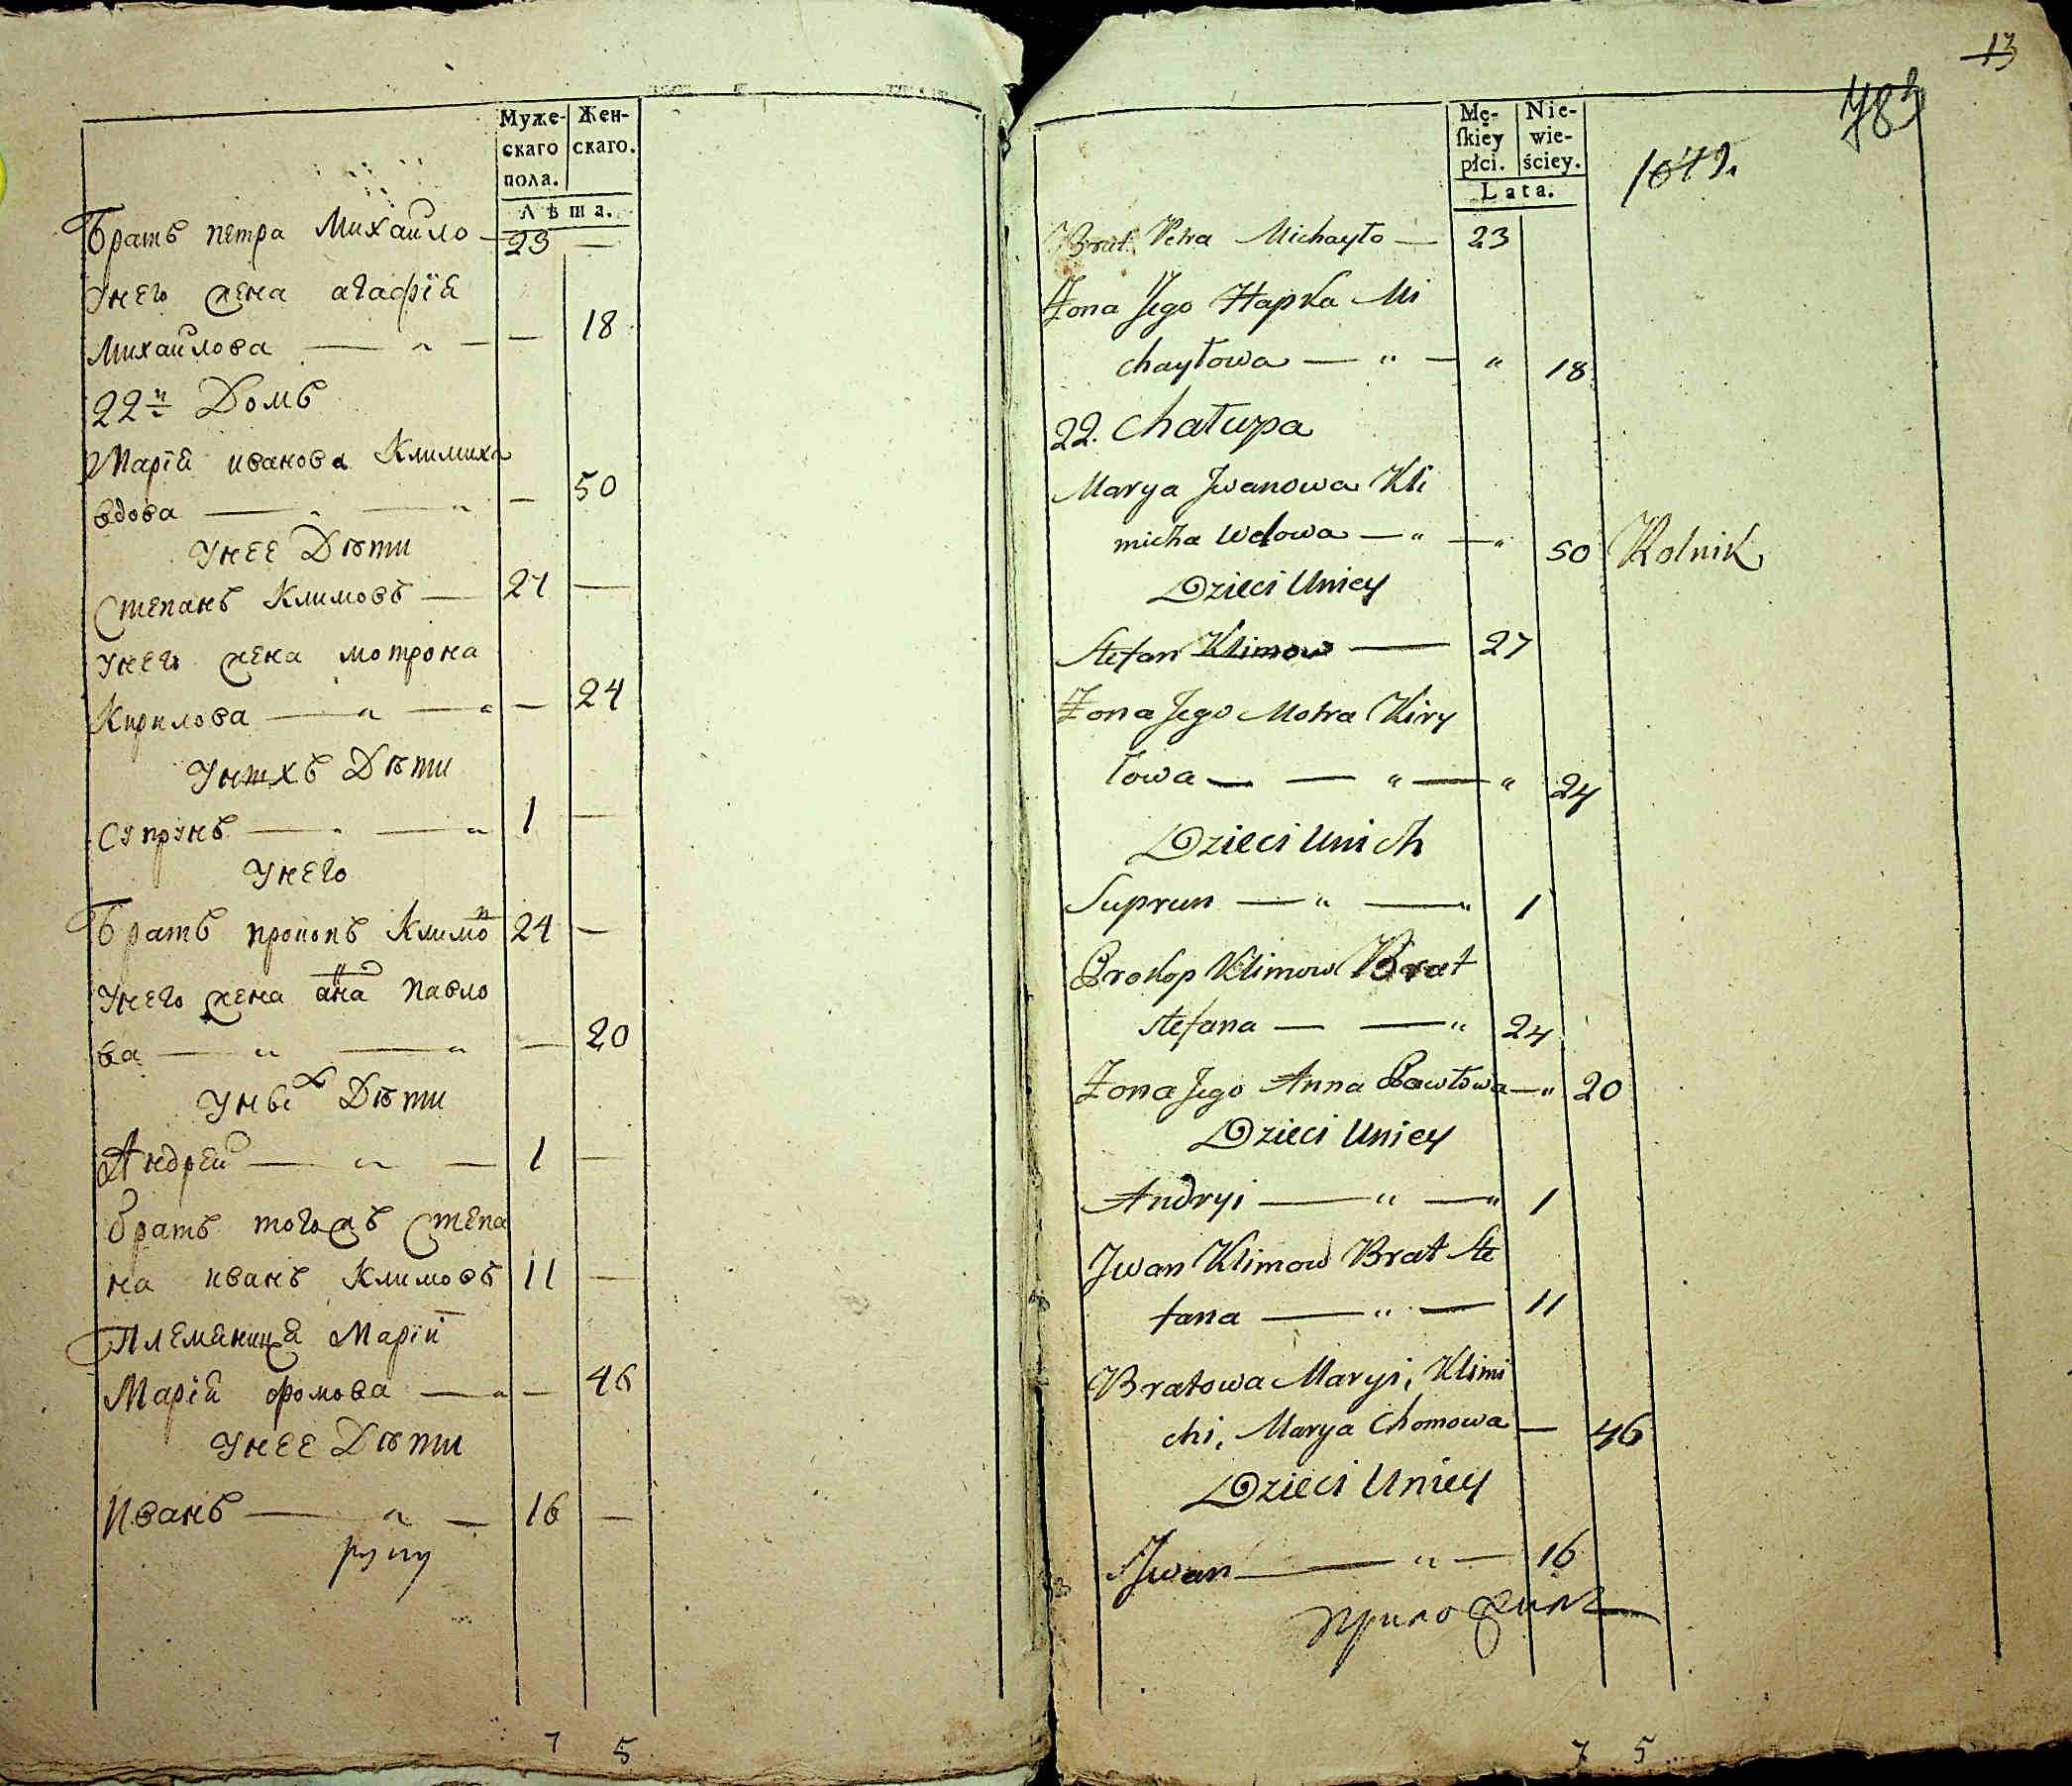 Муже-
скаго
пола.
Жен-
скаго.
Лѣта.
Братъ петра Михаило — 23 —
Унего жена агафїя
Михаилова — — 18
22й Домъ
Марїя иванова Климиха
вдова — — 50
Унее Дѣти
Степанъ Климовъ — 27 —
Унего жена мотрона
Кирилова — — 24
Унихъ Дѣти
Супрунъ — 1 —
Унего
Братъ прокопъ Климо 24 —
Унего жена анна Павло
ва — — 20
Унихъ Дѣти
Андрей — 1 —
братъ тогожъ Степа
на иванъ Климовъ 11 —
Племяница Марїи
Марїя фомова — — 46
Унее Дѣти
Иванъ — 16 —
руку
7 5
13
Mę-
ſkiey
płci.
Nie-
wie-
ściey.
Lata.
Brat Petra Michayło — 23
Żona Jego Hapka Mi
chayłowa — " — " 18
22. Chałupa
Marya Jwanowa Kli
micha Wdowa — " — " 50 Rolnik
Dzieci Uniey
Stefan Klimow — 27
Żona Jego Motra Kiry
łowa — — " — " 24
Dzieci Unich
Suprun — " — " 1
Prokop Klimow Brat
Stefana — — " 24
Żona Jego Anna Pawłowa — " 20
Dzieci Uniey
Andryi — " — " 1
Jwan Klimow Brat Ste
fana — " — 11
Bratowa Maryi, Klimi
chi, Marya Chomowa — 46
Dzieci Uniey
Jwan — " — 16
приложилъ
7 5